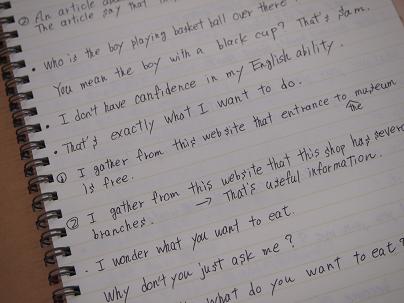 ② An article
The article say that
• who is the boy playing basket ball over there
You mean the boy with a black cup? That's Sam.
• I don't have canfidence in my English ability.
• That's exactly what I want to do.
① I gather from this web site that entrance to museum
the
is free.
② I gather from this website that this shop has several
branches. → That's useful information.
• I wonder what you want to eat.
Why don't you just ask me?
What do you want to eat?